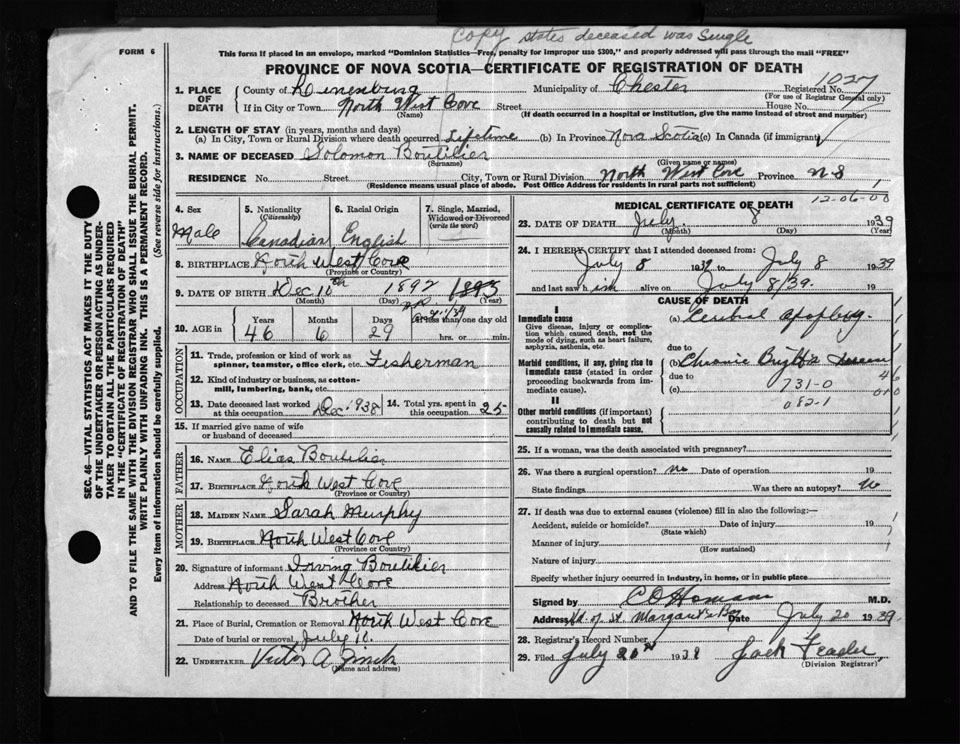 Copy states deceased was Single
FORM 6
This form if placed in an envelope, marked "Dominion Statistics—Free, penalty for improper use $300," and properly addressed will pass through the mail "FREE"
PROVINCE OF NOVA SCOTIA—CERTIFICATE OF REGISTRATION OF DEATH
1027
1. PLACE OF DEATH
County of Lunenburg Municipality of Chester Registered No.
(For use of Registrar General only)
If in City or Town North West Cove Street House No.
(Name) (If death occurred in a hospital or institution, give the name instead of street and number)
2. LENGTH OF STAY (in years, months and days)
(a) In City, Town or Rural Division where death occurred Lifetime (b) In Province Nova Scotia (c) In Canada (if immigrant)
3. NAME OF DECEASED Solomon Boutilier
(Surname) (Given name or names)
RESIDENCE No. Street City, Town or Rural Division North West Cove Province N S
(Residence means usual place of abode. Post Office Address for residents in rural parts not sufficient)
4. Sex
Male
5. Nationality
(Citizenship)
Canadian
6. Racial Origin
English
7. Single, Married, Widowed or Divorced
(write the word)
8. BIRTHPLACE North West Cove
(Province or Country)
9. DATE OF BIRTH Dec 10th 1892 1893
(Month) (Day) (Year)
10. AGE in
Years Months Days If less than one day old
46 6 29 hrs. or min.
OCCUPATION
11. Trade, profession or kind of work as spinner, teamster, office clerk, etc. Fisherman
12. Kind of industry or business, as cotton-mill, lumbering, bank, etc.
13. Date deceased last worked at this occupation Dec. 1938
14. Total yrs. spent in this occupation 25
15. If married give name of wife or husband of deceased
FATHER
16. NAME Elias Boutilier
17. BIRTHPLACE North West Cove
(Province or Country)
MOTHER
18. MAIDEN NAME Sarah Murphy
19. BIRTHPLACE North West Cove
(Province or Country)
20. Signature of informant Irving Boutilier
Address North West Cove
Relationship to deceased Brother
21. Place of Burial, Cremation or Removal North West Cove
Date of burial or removal July 10.
22. UNDERTAKER Victor A.
(Name and address)
MEDICAL CERTIFICATE OF DEATH
12-06-00
23. DATE OF DEATH July 8 1939
(Month) (Day) (Year)
24. I HEREBY CERTIFY that I attended deceased from:
July 8 1939 to July 8 1939
and last saw him alive on July 8/39. 19
CAUSE OF DEATH
I
Immediate cause
Give disease, injury or complication which caused death, not the mode of dying, such as heart failure, asphyxia, asthenia, etc.
(a) Cerebral apoplexy.
due to
Morbid conditions, if any, giving rise to immediate cause (stated in order proceeding backwards from immediate cause).
(b) Chronic Bright's Disease
due to
46
(c) 731-0
082-1
II
Other morbid conditions (if important) contributing to death but not causally related to immediate cause.
25. If a woman, was the death associated with pregnancy?
26. Was there a surgical operation? no Date of operation 19
State findings Was there an autopsy? No
27. If death was due to external causes (violence) fill in also the following:—
Accident, suicide or homicide? Date of injury 19
(State which)
Manner of injury
(How sustained)
Nature of injury
Specify whether injury occurred in industry, in home, or in public place
Signed by M.D.
Address Hd. of St. Margarets Bay Date July 20 1939.
28. Registrar's Record Number
29. Filed July 20th 1938 Jack
(Division Registrar)
SEC. 46—VITAL STATISTICS ACT MAKES IT THE DUTY
OF THE UNDERTAKER OR PERSON ACTING AS UNDERTAKER TO OBTAIN ALL THE PARTICULARS REQUIRED
IN THE "CERTIFICATE OF REGISTRATION OF DEATH"
AND TO FILE THE SAME WITH THE DIVISION REGISTRAR WHO SHALL ISSUE THE BURIAL PERMIT.
WRITE PLAINLY WITH UNFADING INK. THIS IS A PERMANENT RECORD.
Every item of information should be carefully supplied. (See reverse side for instructions.)